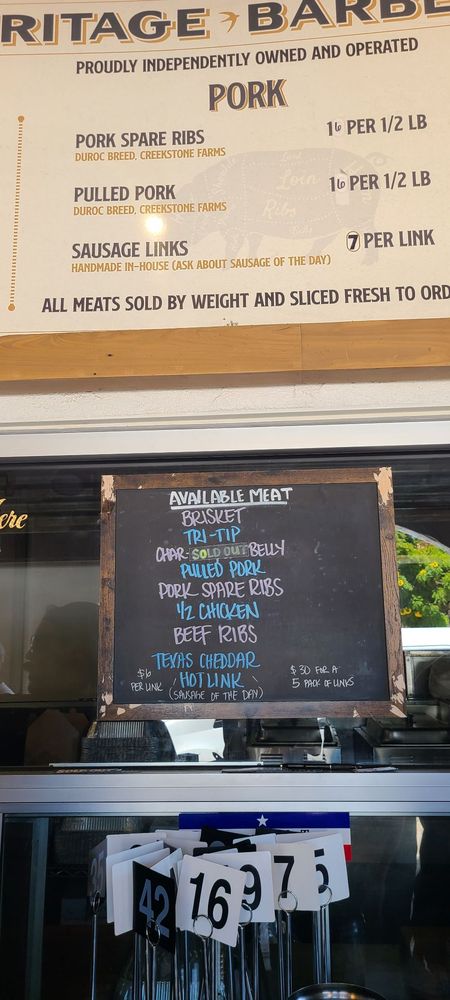 RITAGE BARBE
PROUDLY INDEPENDENTLY OWNED AND OPERATED
PORK
PORK SPARE RIBS 16 PER 1/2 LB
DUROC BREED, CREEKSTONE FARMS
PULLED PORK 16 PER 1/2 LB
DUROC BREED, CREEKSTONE FARMS
Loin
Ribs
SAUSAGE LINKS 7 PER LINK
HANDMADE IN-HOUSE (ASK ABOUT SAUSAGE OF THE DAY)
ALL MEATS SOLD BY WEIGHT AND SLICED FRESH TO ORD
ere
AVAILABLE MEAT
BRISKET
TRI-TIP
CHAR- SOLD OUT BELLY
PULLED PORK
PORK SPARE RIBS
1/2 CHICKEN
BEEF RIBS
TEXAS CHEDDAR
HOTLINK
(SAUSAGE OF THE DAY)
$6
PER LINK
$30 FOR A
5 PACK OF LINKS
42
16
9
7
5